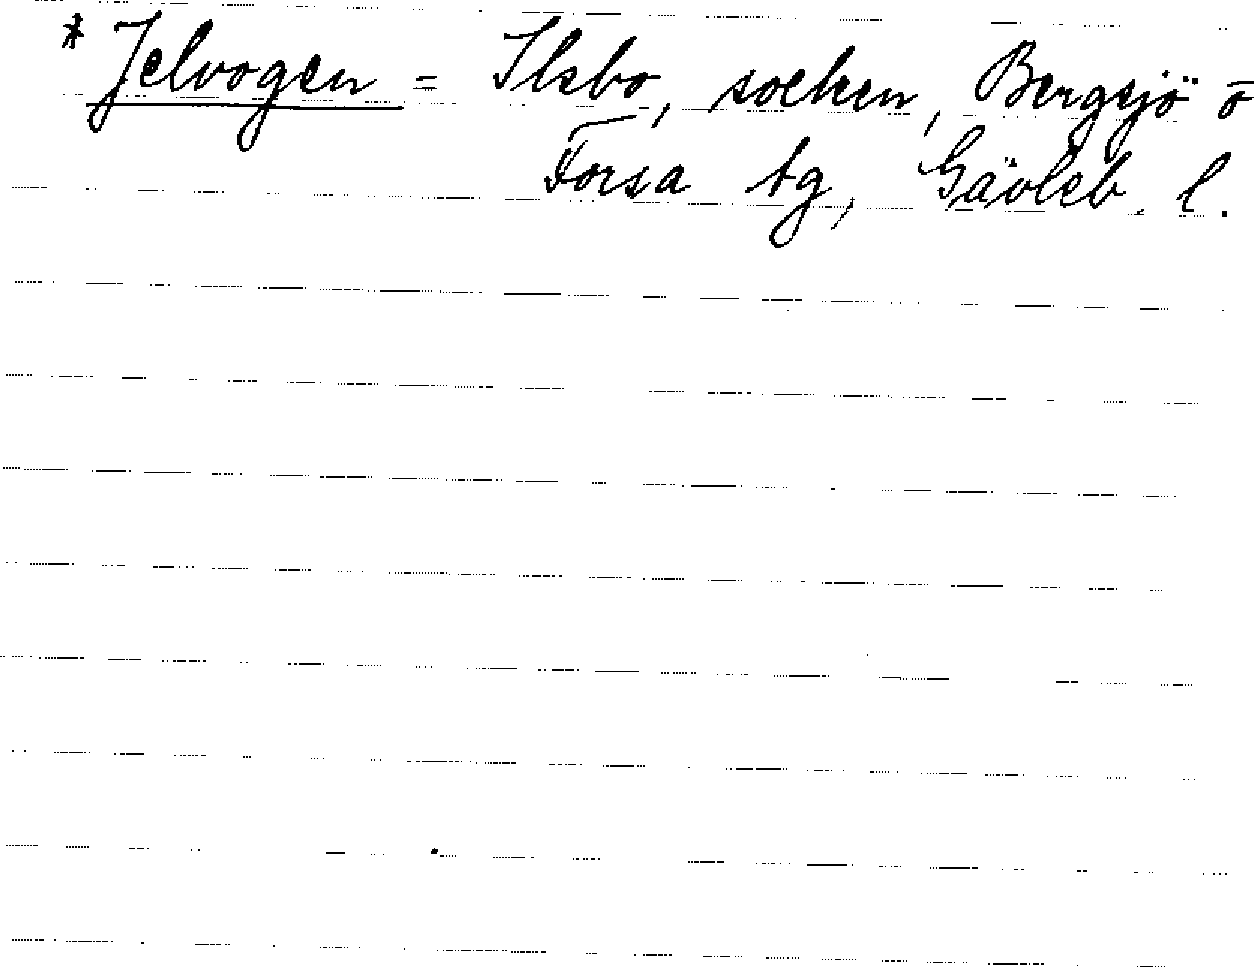 * Jelvogen = Ilsbo, socken, Bergsjö o
Forsa tg, Gävleb. l.